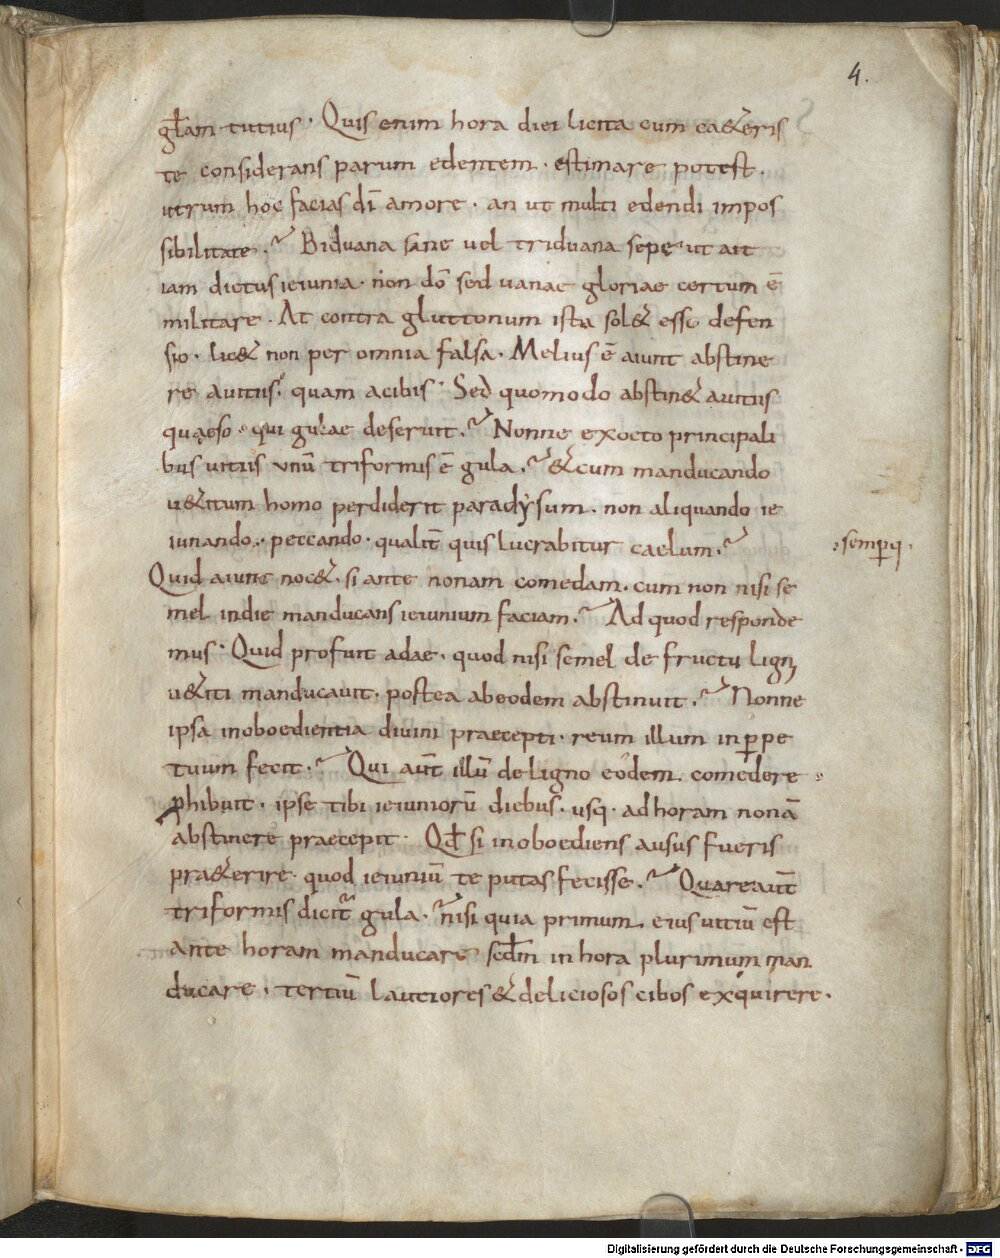 4.
gl̅am tutius. Quis enim hora diei licita cum ca&eris
te considerans parum edentem. estimare potest.
utrum hoc facias dī amore. an ut multi edendi impos
sibilitate. Biduana sane uel triduana sepe ut ait
iam dictus ieiunia. non dō sed uanae gloriae certum ē
militare. At contra gluttonum ista sol& esse defen
sio. lic& non per omnia falsa. Melius ē aiunt abstine
re auitiis. quam acibis. Sed quomodo abstin& auitiis
quaeso. qui gulae deseruit. Nonne exocto principali
bus uitiis unū triformis ē gula. &cum manducando
u&itum homo perdiderit paradysum. non aliquando ie
iunando. peccando. qualit̄ quis lucrabitur caelum.
:semp̱q.
Quid aiunt noc&. si ante nonam comedam. cum non nisi se
mel indie manducans ieiunium faciam. Ad quod responde
mus. Quid profuit adae. quod nisi semel de fructu ligni
u&iti manducauit. postea abeodem abstinuit. Nonne
ipsa inoboedientia diuini praecepti. reum illum inp̱pe
tuum fecit. Qui aūt illū deligno eodem. comedere
phibuit. ipse tibi ieiuniorū diebus. usq. adhoram nonā
abstinere praecepit. Qd̅ si inoboediens ausus fueris
pra&erire. quod ieiuniū te putas fecisse. Quareaūt
triformis dicit̄ gula. nisi quia primum. eius uitiū est
ante horam manducare sed̅m in hora plurimum man
ducare. tertiū lautiores & deliciosos cibos exquirere.
Digitalisierung gefördert durch die Deutsche Forschungsgemeinschaft - DFG